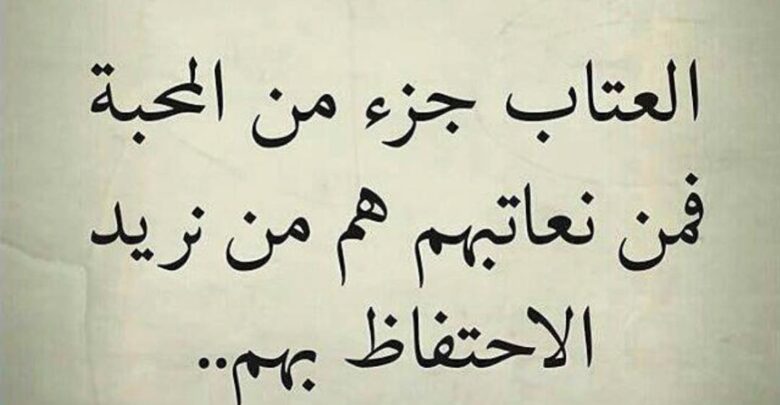 العتاب جزء من المحبة
فمن نعاتبهم هم من نريد
الاحتفاظ بهم..